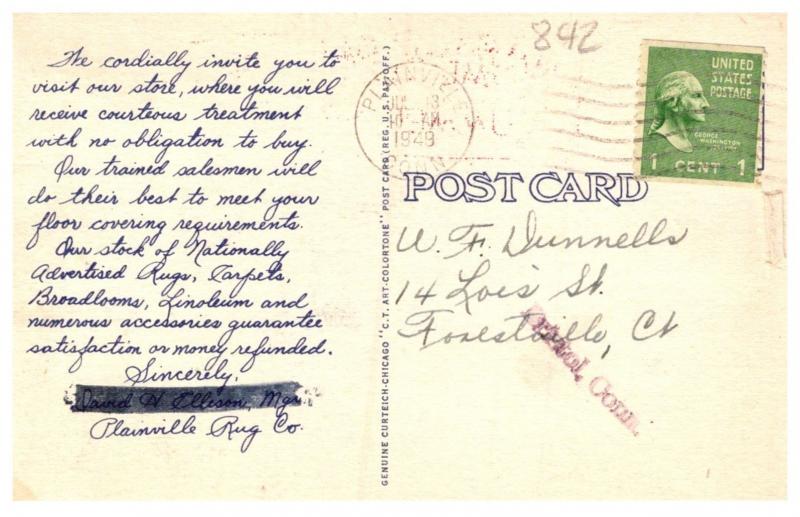 We cordially invite you to
visit our store, where you will
receive courteous treatment
with no obligation to buy.
Our trained salesmen will
do their best to meet your
floor covering requirements.
Our stock of Nationally
Advertised Rugs, Carpets,
Broadlooms, Linoleum and
numerous accessories guarantee
satisfaction or money refunded.
Sincerely,
David H Ellison, Mgr.
Plainville Rug Co.
GENUINE CURTEICH-CHICAGO "C.T. ART-COLORTONE" POST CARD (REG. U.S. PAT. OFF.)
842
PLAINVILLE
13
AM
1949
CONN
UNITED
STATES
POSTAGE
GEORGE
WASHINGTON
1 CENT 1
POST CARD
W. F. Dunnells
14 Lois St.
Forestville, Ct
Bristol, Conn.